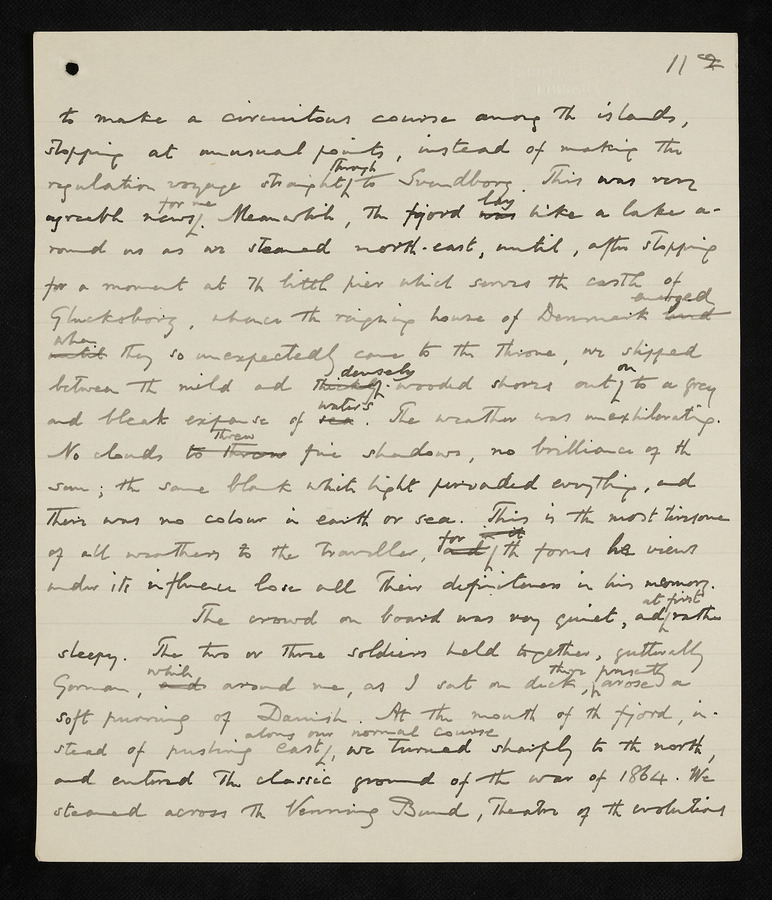 11
to make a circuitous course among the islands,
stopping at unusual points, instead of making the
through
regulation voyage straight to Svendborg. This was very
for me lay
agreeable news. Meanwhile, the fjord was like a lake a-
round us as we steamed north-east, until, after stopping
for a moment at the little pier which serves the castle of
emerged
Glucksborg, whence the reigning house of Denmark
when
until they so unexpectedly came to the throne, we slipped
densely on
between the mild and thickly wooded shores out to a grey
waters
and bleak expanse of sea. The weather was unexhilarating.
threw
No clouds to throw fine shadows, no brilliance of the
sun; the same blank white light pervaded everything, and
there was no colour in earth or sea. This is the most tiresome
for it
of all weathers to the traveller, and the forms he views
under its influence lose all their definiteness in his memory.
at first
The crowd on board was very quiet, and rather
sleepy. The two or three soldiers held together, gutturally
which there presently
German, and around me, as I sat on deck, arose a
soft purring of Danish. At the mouth of the fjord, in-
along our normal course
stead of pushing east, we turned sharply to the north,
and entered the classic ground of the war of 1864. We
steamed across the Venning Bund, theatre of the evolutions